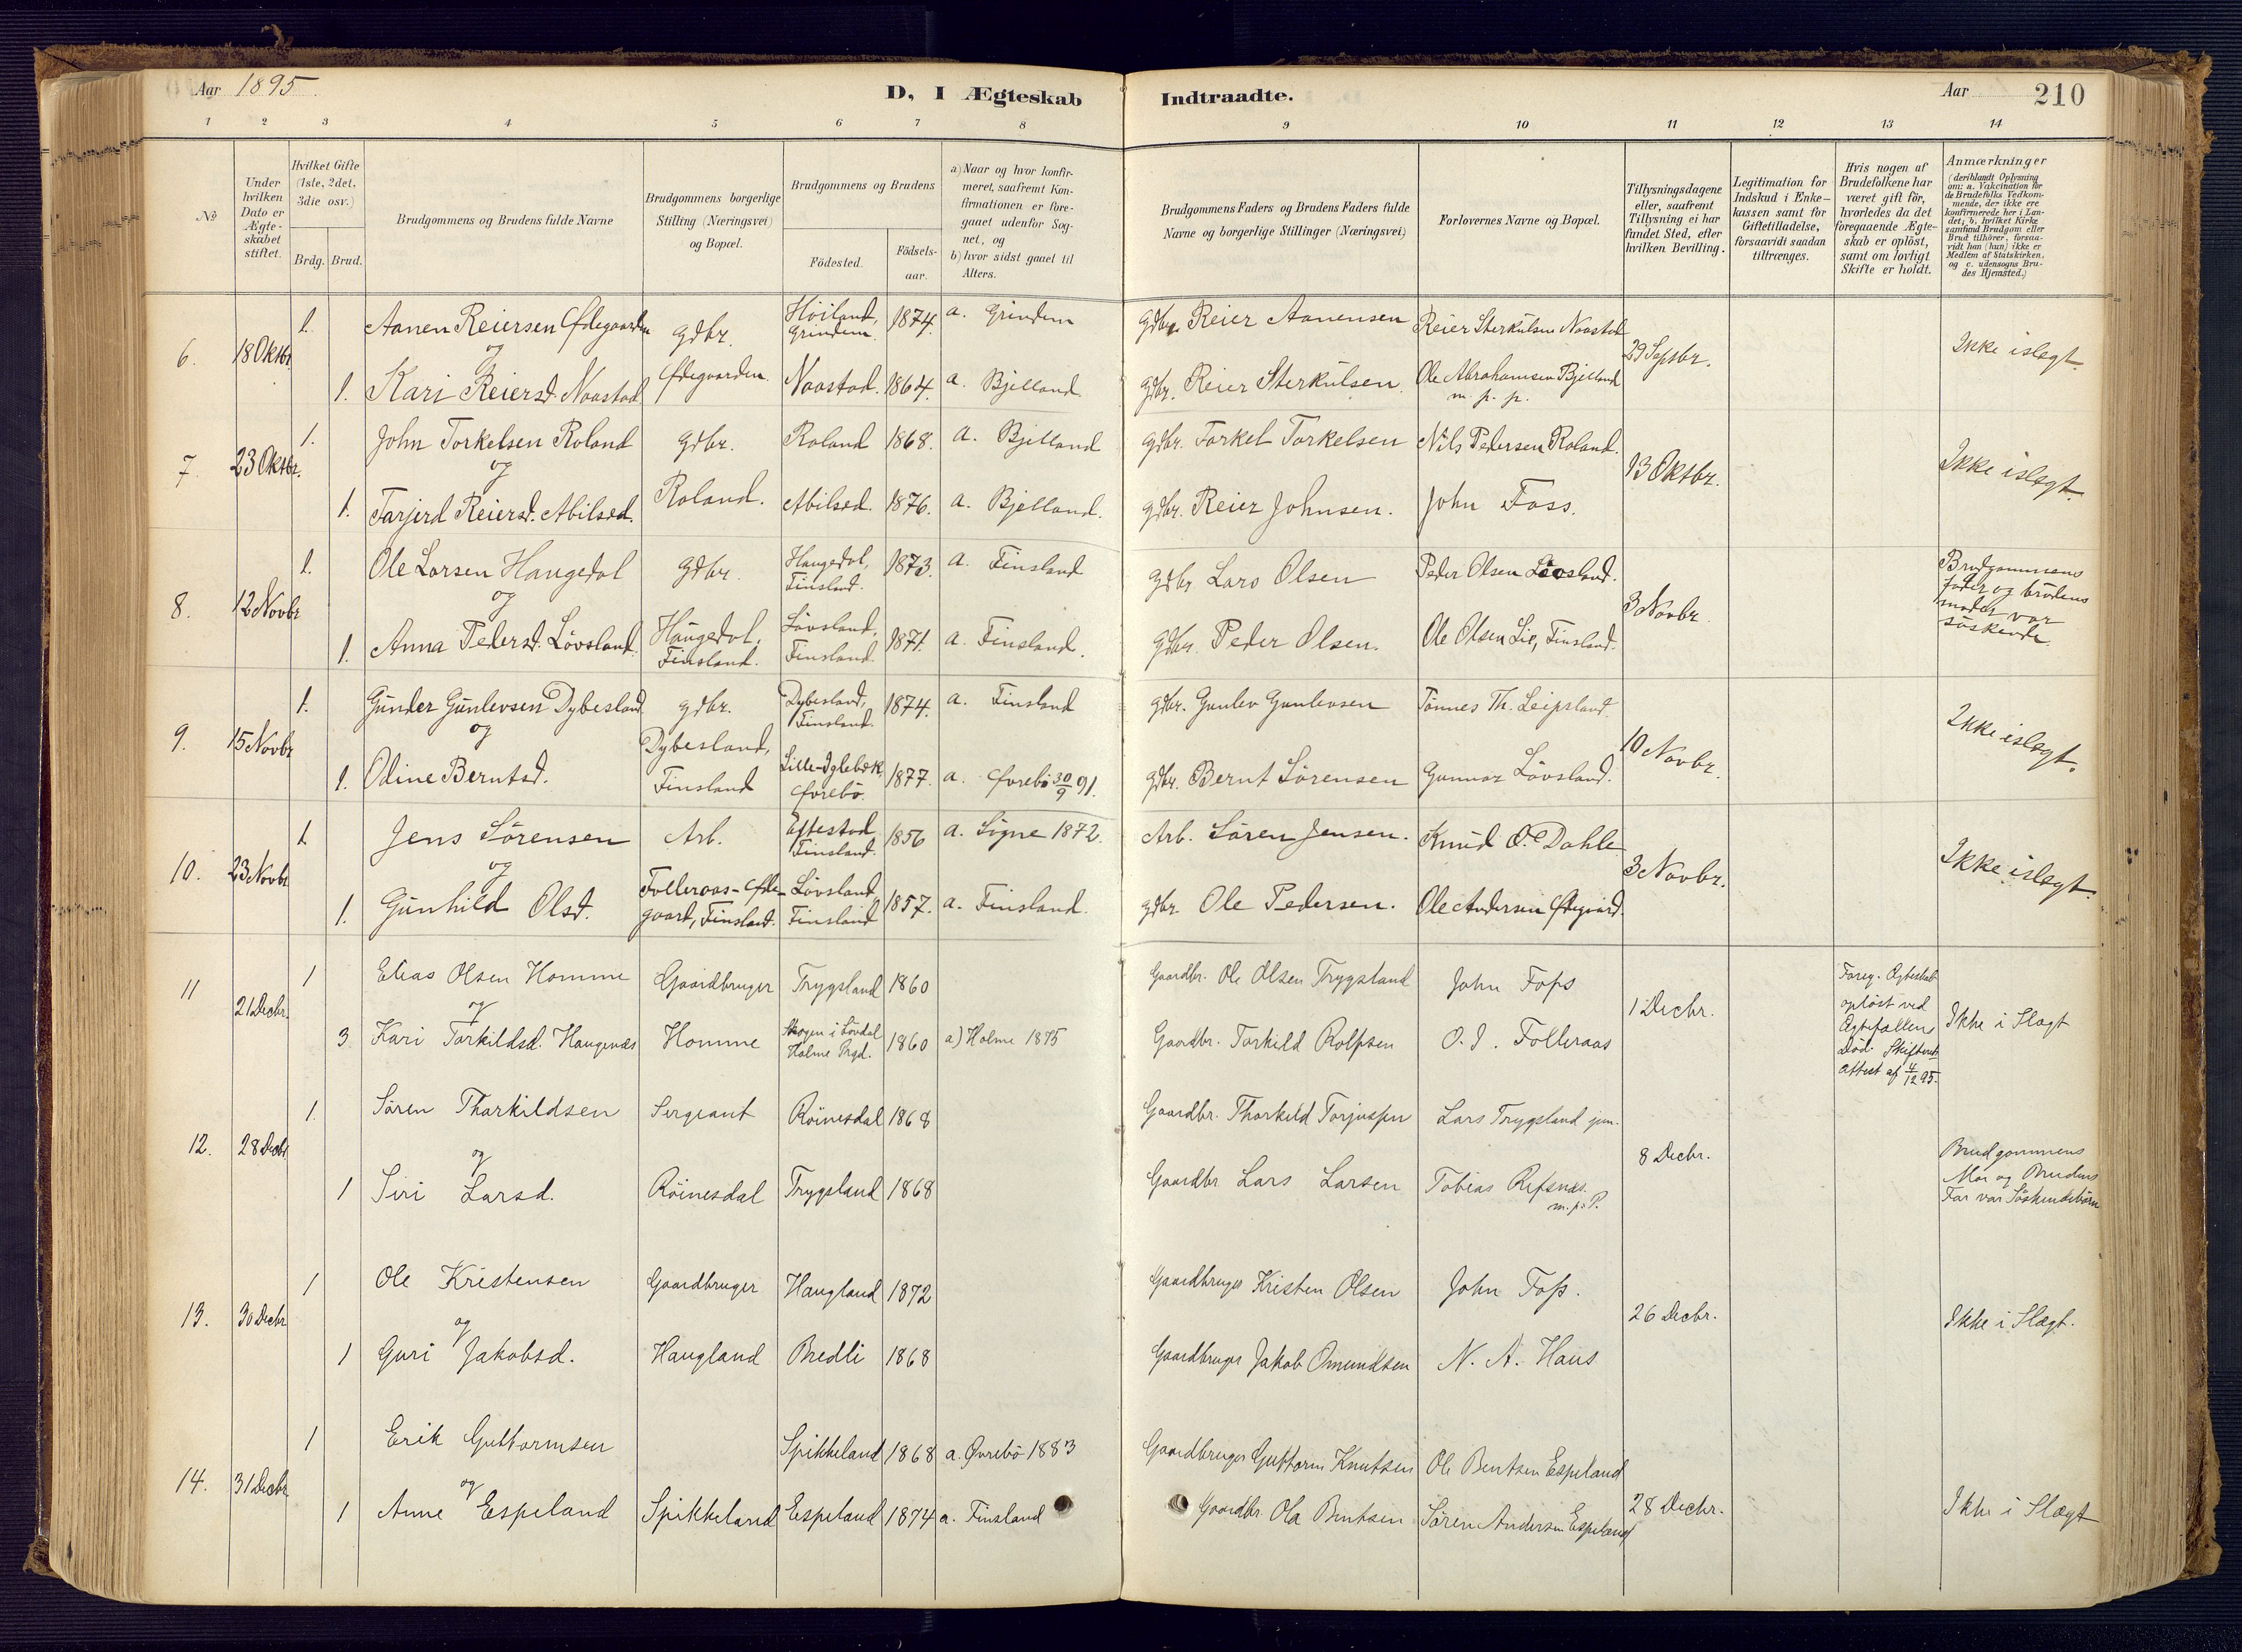 Aar 1895.
D, I Ægteskab Indtraadte.
Aar 210
1 2 3 4 5 6 7 8 9 10 11 12 13 14
No
Under hvilken Dato er Ægteskabet stiftet.
Hvilket Gifte (1ste, 2det, 3die osv.)
Brdg. Brud.
Brudgommens og Brudens fulde Navne
Brudgommens borgerlige Stilling (Næringsvei) og Bopæl.
Brudgommens og Brudens
Födested.
Födselsaar.
a) Naar og hvor konfirmeret, saafremt Konfirmationen er foregaaet udenfor Sognet, og
b) hvor sidst gaaet til Alters.
Brudgommens Faders og Brudens Faders fulde Navne og borgerlige Stillinger (Næringsvei)
Forlovernes Navne og Bopæl.
Tillysningsdagene eller, saafremt Tillysning ei har fundet Sted, efter hvilken Bevilling.
Legitimation for Indskud i Enkekassen samt for Giftetilladelse, forsaavidt saadan tiltrænges.
Hvis nogen af Brudefolkene har været gift för, hvorledes da det foregaaende Ægteskab er oplöst, samt om lovligt Skifte er holdt.
Anmærkninger (deriblandt Oplysning om: a. Vakcination for de Brudefolks Vedkommende, der ikke ere konfirmerede her i Landet; b. hvilket Kirkesamfund Brudgom eller Brud tilhörer, forsaavidt han (hun) ikke er Medlem af Statskirken, og c. udensogns Brudes Hjemsted.)
6. 18 Oktbr. 1. Aanen Reiersen Ødegaarden gdbr. Höiland, Grindem. 1874. a. Grindem gdbr. Reier Aanensen Reier Sterkulsen Naastad 29 Septbr. Ikke islægt.
og
1. Kari Reiersd. Naastad Ødegaarden. Naastad. 1864. a. Bjelland gdbr. Reier Sterkulsen. Ole Abrahamsen Bjelland m. p. p.
7. 23 Oktbr. 1. John Torkelsen Roland gdbr. Roland 1868. a. Bjelland gdbr. Torkel Torkelsen Nils Pedersen Roland. 13 Oktbr. Ikke islægt.
og
1. Tarjerd Reiersd. Abilsed. Roland. Abilsed. 1876. a. Bjelland. gdbr. Reier Johnsen. John Foss.
8. 12 Novbr 1. Ole Larsen Haugedal gdbr. Haugedal, Finsland. 1873. a. Finsland gdbr Lars Olsen Peder Olsen Lövsland. 3 Novbr. Brudgommens fader og brudens moder var söskende.
og
1. Anna Pedersd. Lövsland. Haugedal, Finsland. Lövsland, Finsland. 1871. a. Finsland. gdbr. Peder Olsen. Ole Olsen Lie, Finsland.
9. 15 Novbr 1. Gunder Gunlevsen Dybesland gdbr. Dybesland, Finsland. 1874. a. Finsland gdbr. Gunlev Gunlevsen Tönnes Th. Leipsland. 10 Novbr. Ikke islægt.
og
1. Odine Berntsd. Dybesland, Finsland Lille-Iglebæk, Øvrebö. 1877. a. Øvrebö 30/9 91. gdbr. Bernt Sörensen Gunnar Lövsland.
10. 23 Novbr 1. Jens Sörensen Arb. Eftestad, Finsland. 1856 a. Sögne 1872. Arb. Sören Jensen. Knud O. Dahle 3 Novbr. Ikke islægt.
og
1. Gunhild Olsd. Folleraas-Ødegaard, Finsland. Lövsland, Finsland 1857. a. Finsland. gdbr. Ole Pedersen. Ole Andersen Ødegaard.
11 21 Decbr. 1 Elias Olsen Homme Gaardbruger Trygsland 1860 Gaardbr. Ole Olsen Trygsland John Foss 1 Decbr. Foreg. Ægteskab oplöst ved Ægtefællens Död. Skifteretsattest af 4/12 95. Ikke i Slægt
og
3 Kari Torkildsd. Haugenæs Homme Skogen i Lövdal Holme Prgd. 1860 a) Holme 1875 Gaardbr. Torkild Rolfsen O. J. Folleraas
12. 28 Decbr 1. Sören Thorkildsen Sergeant Röinesdal 1868 Gaardbr. Thorkild Torjussen Lars Trygsland jun. 8 Decbr. Brudgommens Mor og Brudens Far var Söskendebörn
og
1 Siri Larsd. Röinesdal Trygsland 1868 Gaardbr Lars Larsen Tobias Refsnæs. m. p. P.
13. 30 Decbr 1 Ole Kristensen Gaardbruger Haugland 1872 Gaardbruger Kristen Olsen John Foss. 26 Decbr. Ikke i Slægt.
og
1 Guri Jakobsd. Haugland Bredli 1868 Gaardbruger Jakob Omundsen N. A. Haus
14. 31 Decbr 1 Erik Guttormsen Spikkeland 1868 a. Øvrebö 1883 Gaardbruger Guttorm Knutsen Ole Bentsen Espeland 28 Decbr. Ikke i Slægt
og
1 Anne Espeland Spikkeland Espeland 1874 a. Finsland Gaardbr. Ola Bentsen Sören Andersen Espeland